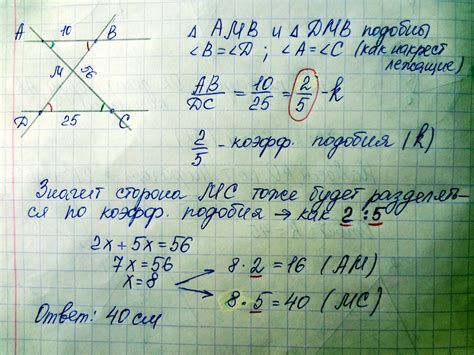 A 10 B
M 56
D 25 C
△ AMB и △ DMB подобны
∠B=∠D ; ∠A=∠C (как накрест
лежащие)
AB/DC = 10/25 = 2/5 - k
2/5 - коэфф. подобия (k)
Значит сторона MC тоже будет разделять-
ся по коэфф. подобия → как 2:5
2x+5x=56
7x=56
x=8
8·2=16 (AM)
8·5=40 (MC)
Ответ: 40 см